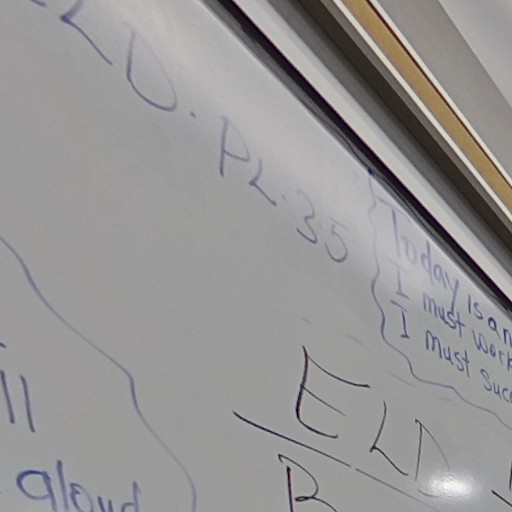 ELD.
PL.35
Today is an
I must work
I must succ
ELD
aloud